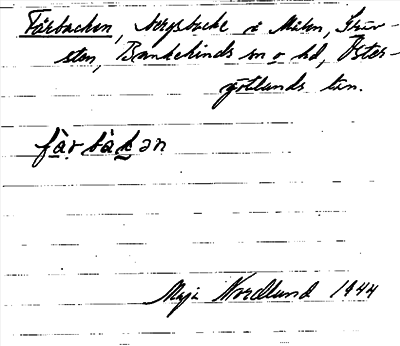 Fårbacken, bergsbacke i Målen, Skär-
sten, Bankekinds sn o hd, Öster-
götlands län.
fàrbàkən
Maja Nordlund 1944